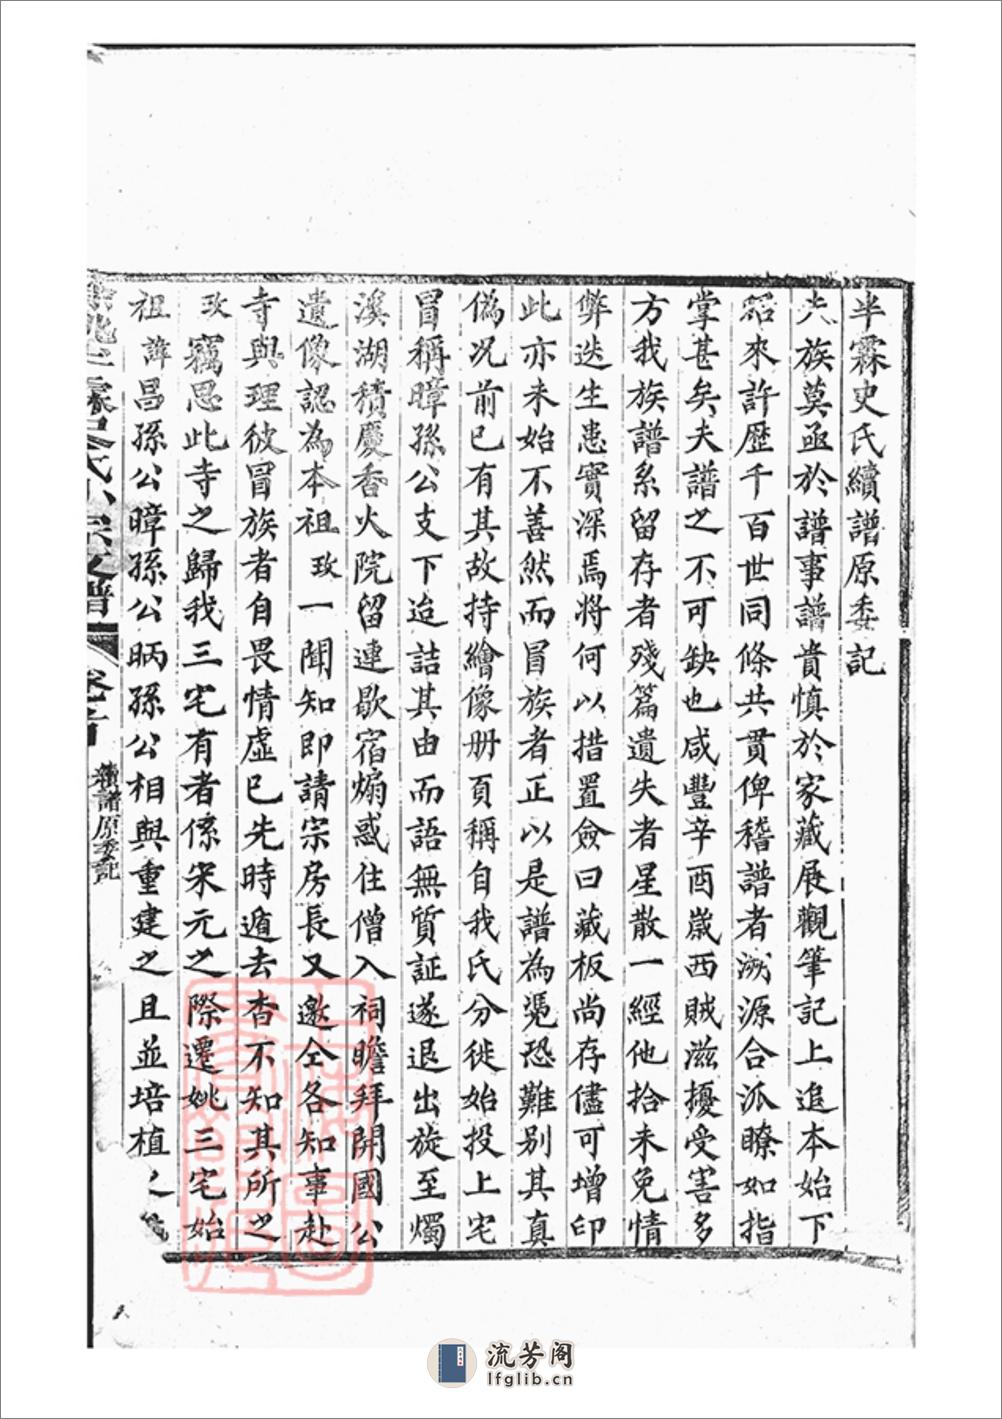 半霖史氏續譜原委記
夫族莫亟於譜事譜貴慎於家藏展觀筆記上追本始下
昭來許歷千百世同條共貫俾稽譜者溯源合派瞭如指
掌甚矣夫譜之不可缺也咸豐辛酉歲西賊滋擾受害多
方我族譜系留存者殘篇遺失者星散一經他拾未免情
弊迭生患實深焉將何以措置僉曰藏板尚存儘可增印
此亦未始不善然而冒族者正以是譜為憑恐難別其真
偽况前已有其故持繪像册頁稱自我氏分徙始投上宅
冒稱暲孫公支下迨詰其由而語無質証遂退出旋至燭
溪湖積慶香火院留連歇宿煽惑住僧入祠瞻拜開國公
遺像認為本祖玫一聞知即請宗房長又邀仝各知事赴
寺與理彼冒族者自畏情虛已先時遁去杳不知其所之
玫竊思此寺之歸我三宅有者係宋元之際遷姚三宅始
祖諱昌孫公暲孫公昞孫公相與重建之且並培植之
餘姚半霖史氏小宗支譜 卷首 續譜原委記
流芳阁
lfglib.cn